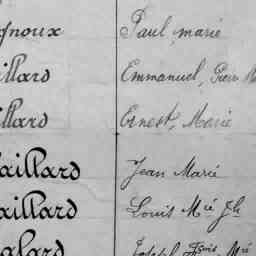 gnoux Paul, marie
illard Emmanuel, Pierre M
illard Ernest, Marie
aillard Jean Marié
aillard Louis Mie Jh
alard Joseph Fçois Mie